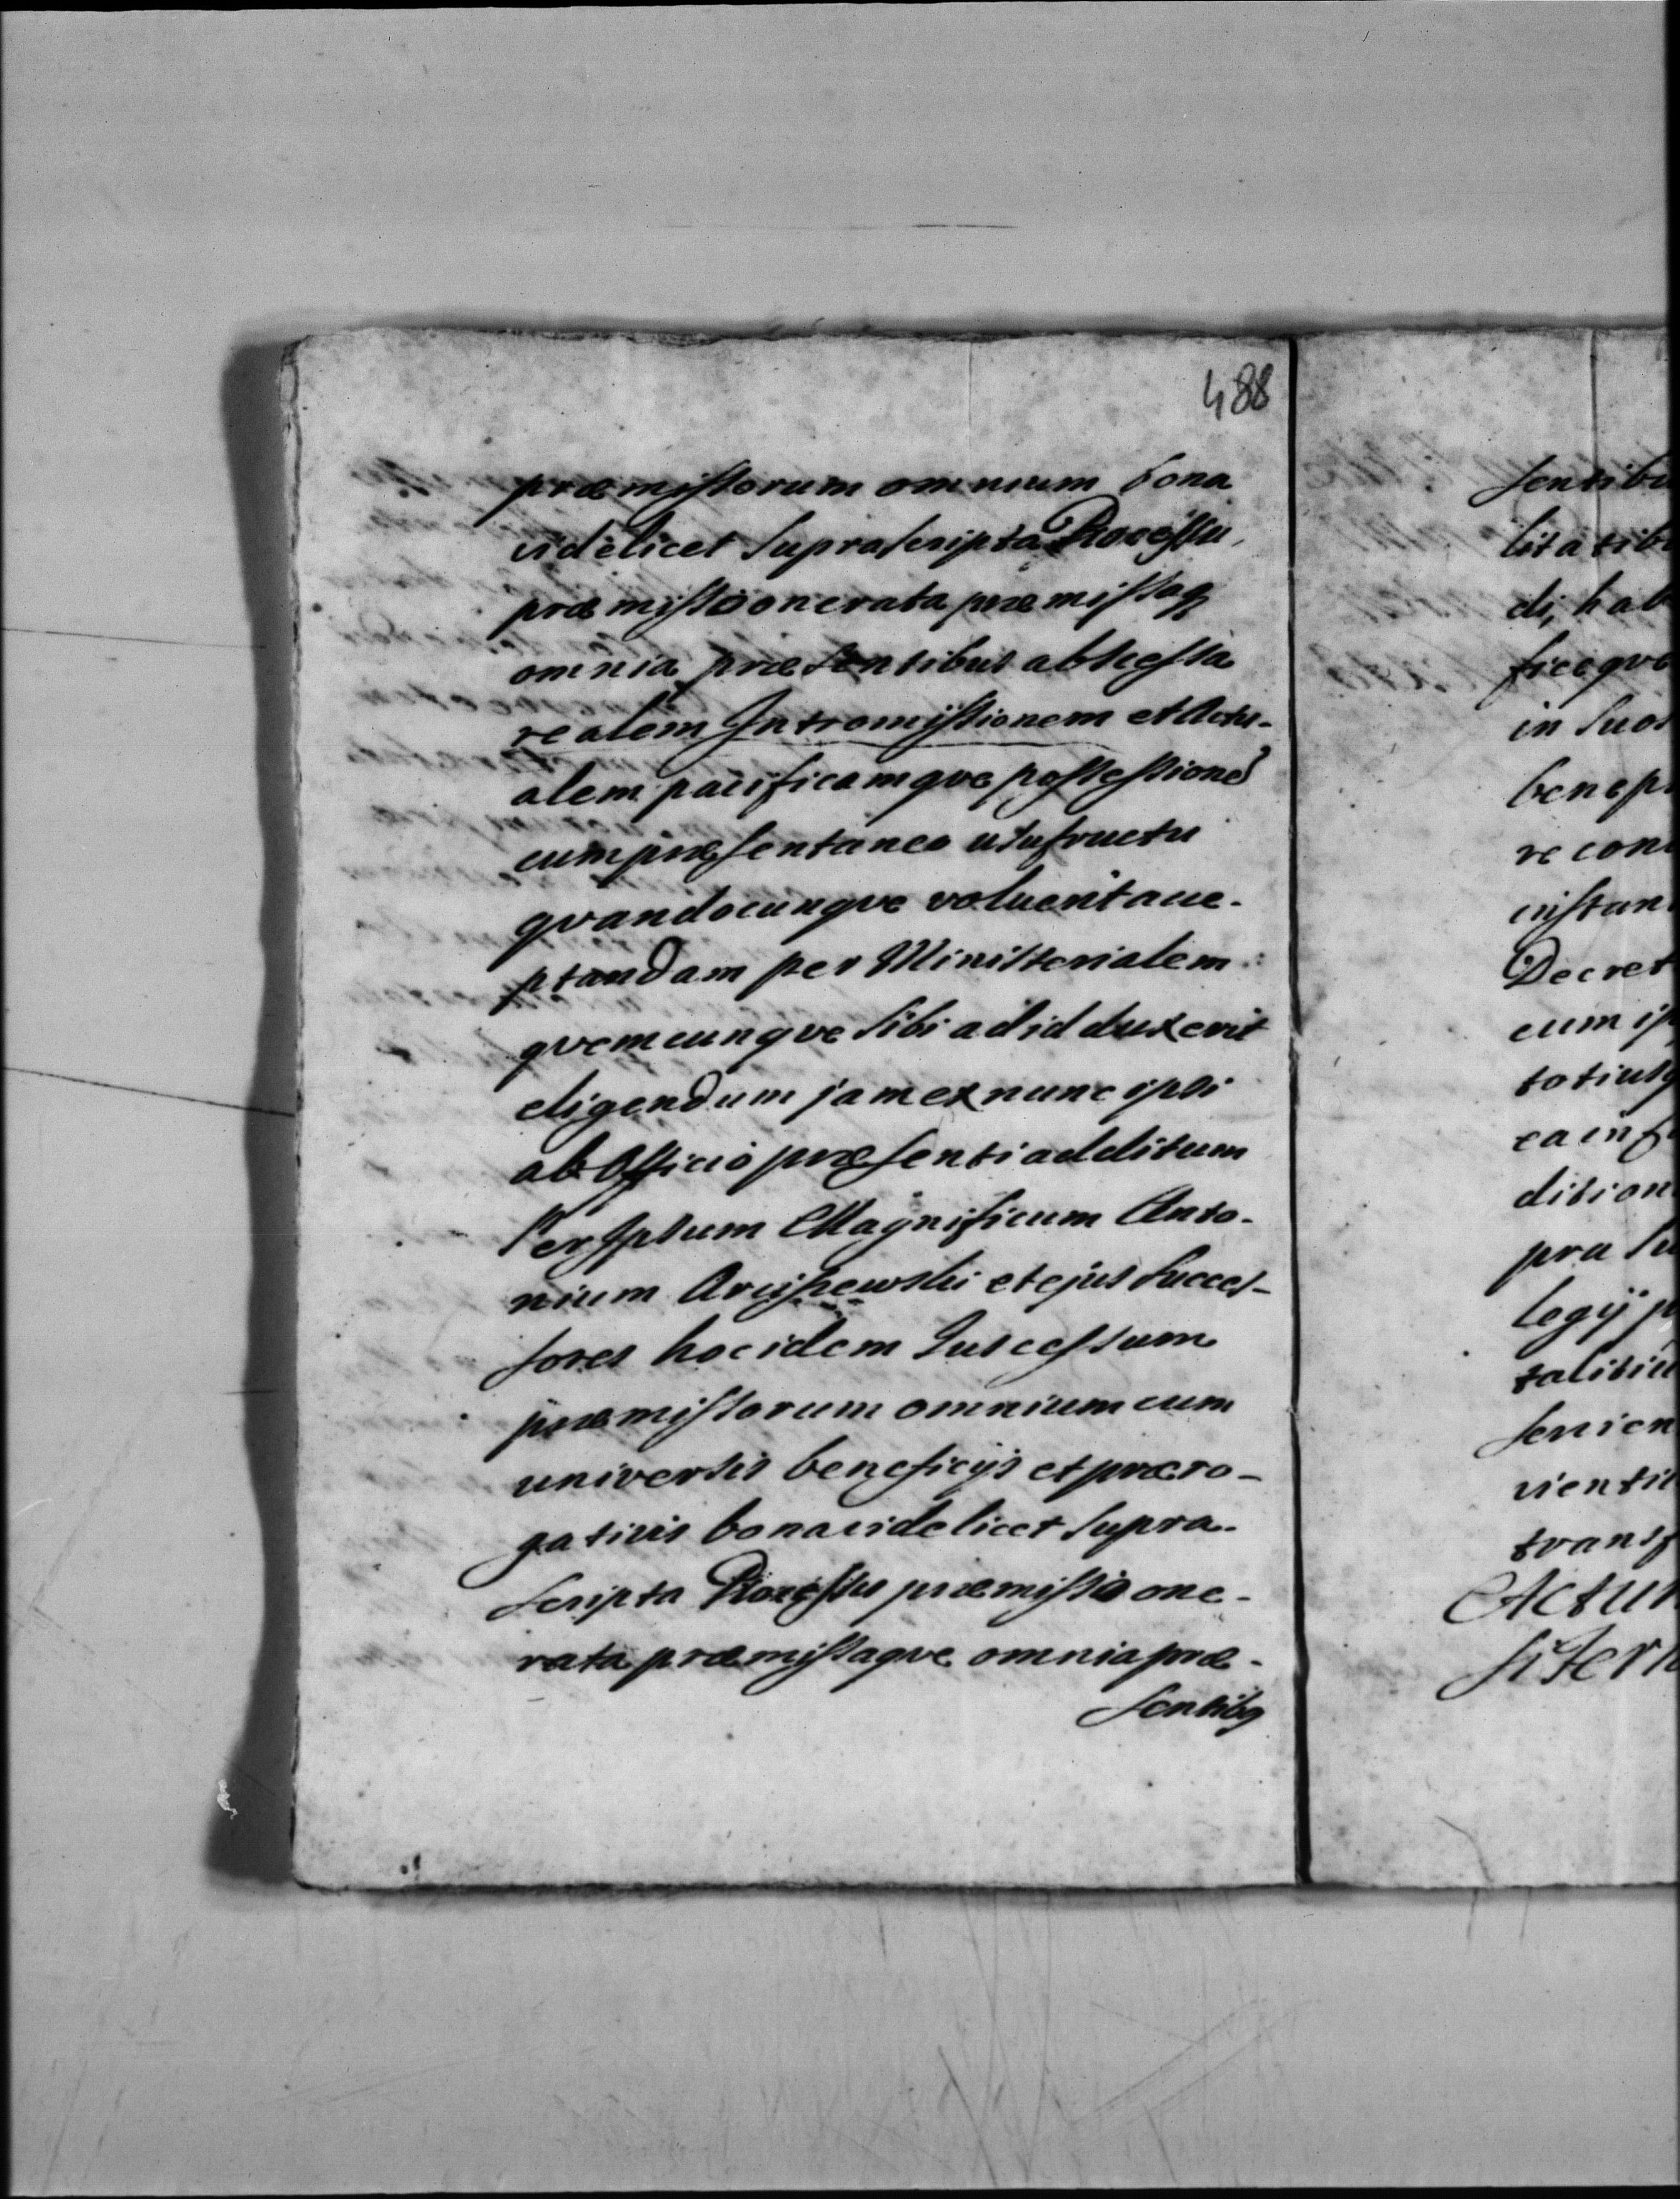 488
præmissorum omnium bona
videlicet Suprascripta Processu
præmisso onerata præmissaq
omnia præsentibus abscessa
realem Intromissionem et Actu-
alem pacificamqve possessione
cum præsentaneo usufructu
qvandocunqve voluerit acce-
ptandam per Ministerialem
qvemcunqve Sibi ad id duxerit
eligendum jam ex nunc ipsi
ab Officio præsenti additum
Per Ipsum Magnificum Anto-
nium Arciszewski et ejus Succes-
sores hoc idem Sucessum
præmissorum omnium cum
universis beneficijs et præro-
gativis bona videlicet Supra-
scripta Processu præmisso one-
rata præmissaqve omnia præ-
sentibq
sentibu
litatib
di, hab
ficeqve
in Suos
benepl
re con
instan
Decret
cum ip
totiusq
ea inf
dition
pra Su
legij p
talitiu
servien
vientiu
transf
Actum